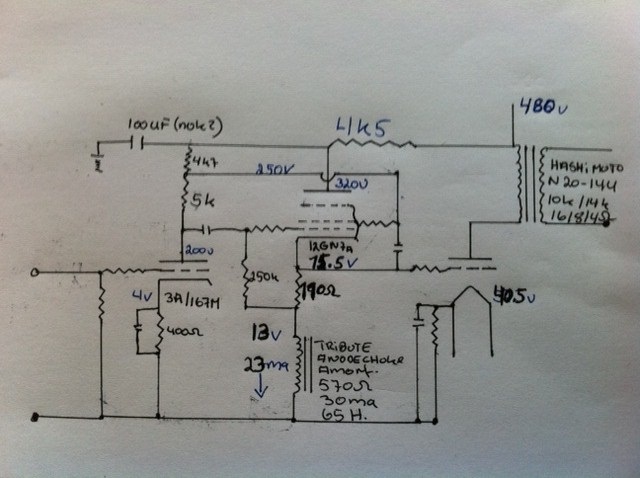 100UF (nok?)
L/K5
480v
4k7
250V
320V
HASHIMOTO
N 20-144
10k/14k
16/8/4Ω
5k
200v
12GN7A
15.5v
250k
190Ω
4v
3A/167M
400Ω
40.5v
13v
23ma
TRIBUTE
ANODECHOKE
Amorf.
570Ω
30ma
65 H.